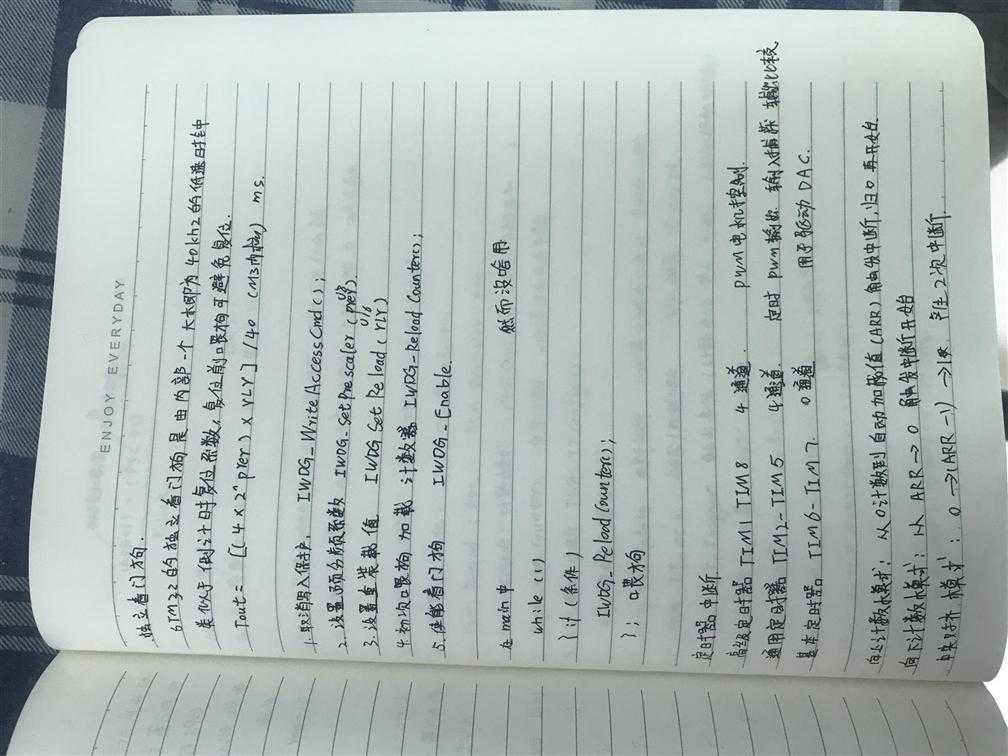 ENJOY EVERYDAY
独立看门狗.
STM32的独立看门狗是由内部一个 大概为40khz的低速时钟
类似于倒计时复位系数,复位前喂狗可避免复位.
Tout = [(4×2^prer)×rLr]/40 (M3内核) ms.
1.取消写入保护. IWDG_WriteAccessCmd();
2.设置预分频系数 IWDG_SetPrescaler(prer);
3.设置重装载值 IWDG_SetReload(rLr)
4.初项喂狗加载计数器 IWDG_ReloadCounter();
5.使能看门狗 IWDG_Enable.
在main中 然而没啥用
while(1)
{if(条件)
IWDG_ReloadCounter();
}; 喂狗
定时器中断
高级定时器 TIM1 TIM8 4通道. PWM电机控制.
通用定时器 TIM2-TIM5 4通道. 定时 PWM输出 输入捕获 输出比较
基本定时器 TIM6-TIM7. 0通道 用于驱动DAC.
向上计数模式: 从0计数到自动加载值(ARR)触发中断,归0再开始.
向下计数模式: 从ARR→0 触发中断开始
中央对齐模式: 0→(ARR-1)→1 产生2次中断.